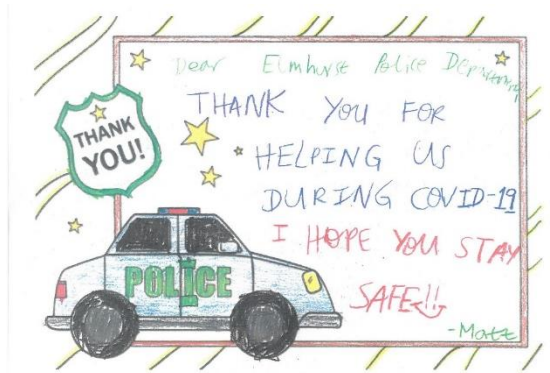 Dear Elmhurst Police Department
THANK YOU FOR
HELPING US
DURING COVID-19
I HOPE YOU STAY
SAFE!!
THANK
YOU!
POLICE